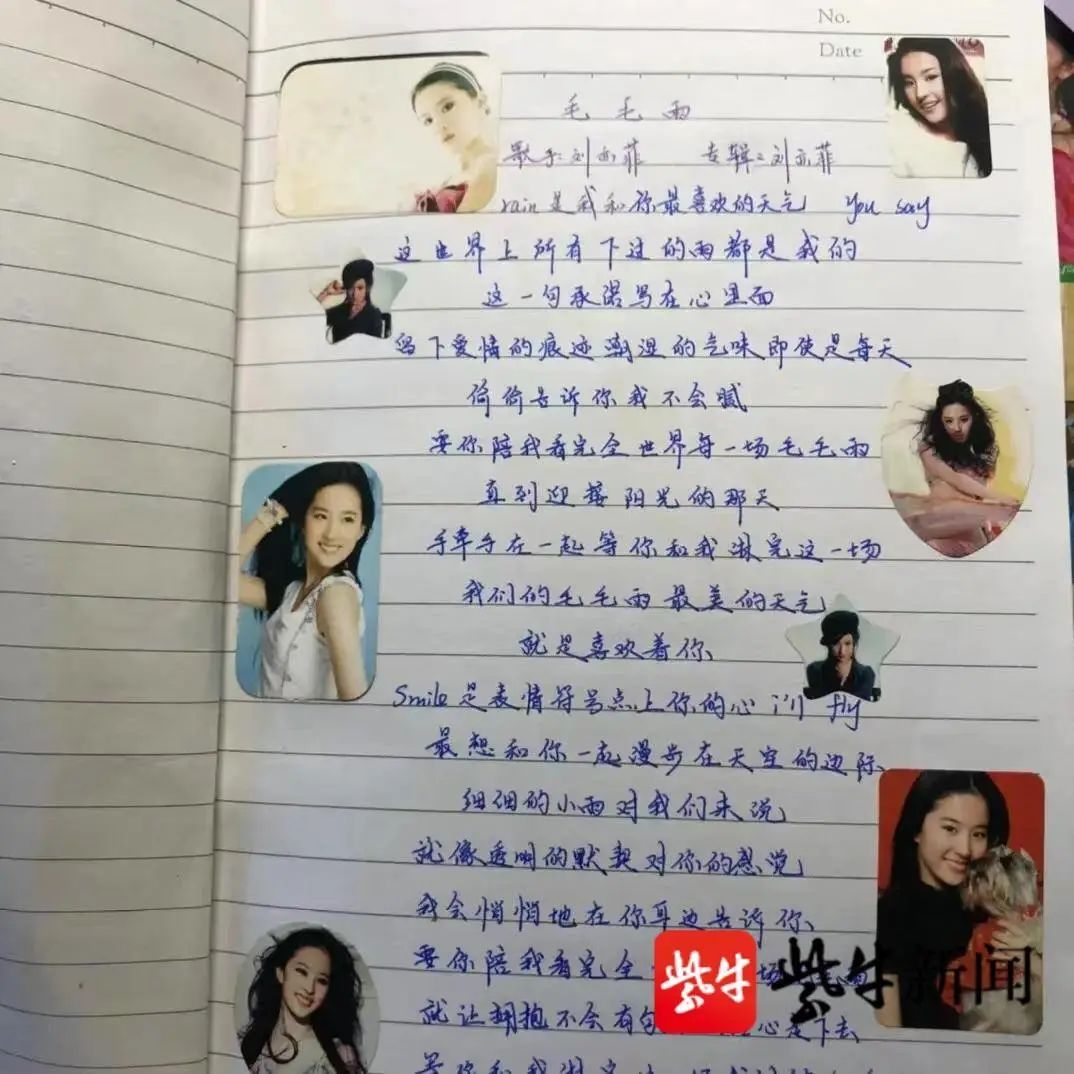 No.
Date
毛毛雨
歌手:刘亦菲 专辑:刘亦菲
rain是我和你最喜欢的天气 You say
这世界上所有下过的雨都是我的
这一句承诺写在心里面
留下爱情的痕迹潮湿的气味即使是每天
偷偷告诉你我不会腻
要你陪我看完全世界每一场毛毛雨
直到迎接阳光的那天
手牵手在一起等你和我淋完这一场
我们的毛毛雨最美的天气
就是喜欢着你
Smile是表情符号点上你的心 i'll fly
最想和你一起漫步在天空的边际
细细的小雨对我们来说
就像透明的默契对你的感觉
我会悄悄地在你耳边告诉你
要你陪我看完全
就让拥抱不会有句 心走下去
等你和我淋完
紫牛 紫牛新闻